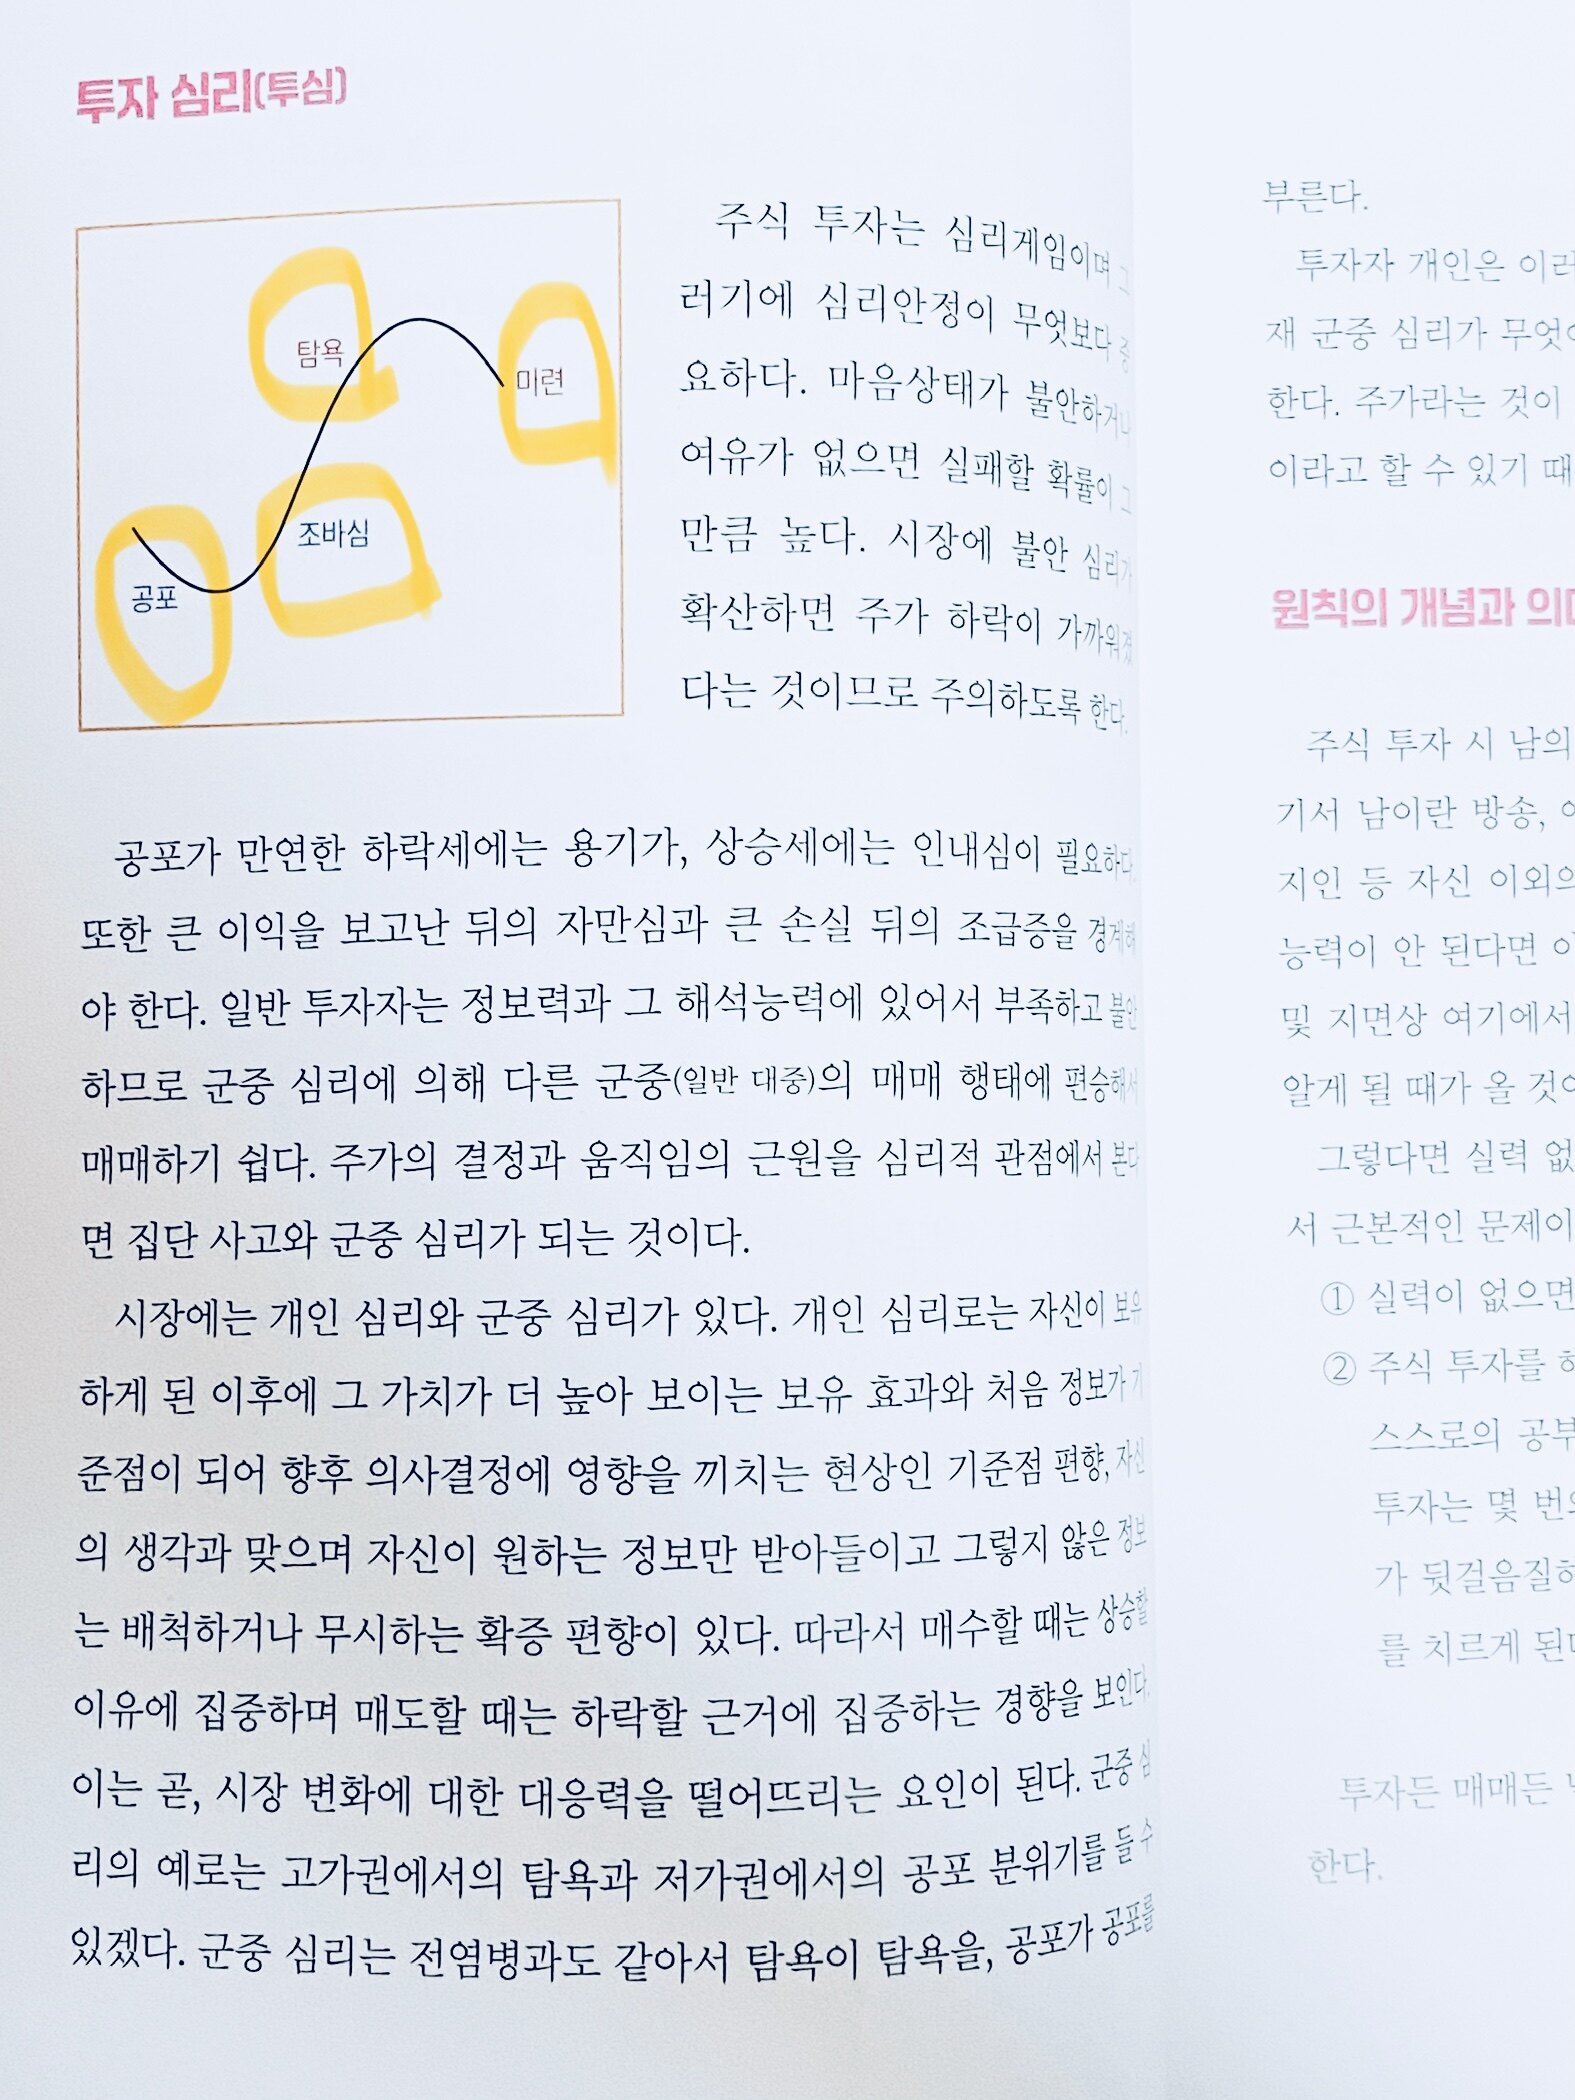 투자 심리(투심)
탐욕
미련
조바심
공포
주식 투자는 심리게임이며 그
러기에 심리안정이 무엇보다 중
요하다. 마음상태가 불안하거나
여유가 없으면 실패할 확률이 그
만큼 높다. 시장에 불안 심리가
확산하면 주가 하락이 가까워졌
다는 것이므로 주의하도록 한다.
공포가 만연한 하락세에는 용기가, 상승세에는 인내심이 필요하다.
또한 큰 이익을 보고난 뒤의 자만심과 큰 손실 뒤의 조급증을 경계해
야 한다. 일반 투자자는 정보력과 그 해석능력에 있어서 부족하고 불안
하므로 군중 심리에 의해 다른 군중(일반 대중)의 매매 행태에 편승해서
매매하기 쉽다. 주가의 결정과 움직임의 근원을 심리적 관점에서 본다
면 집단 사고와 군중 심리가 되는 것이다.
시장에는 개인 심리와 군중 심리가 있다. 개인 심리로는 자신이 보유
하게 된 이후에 그 가치가 더 높아 보이는 보유 효과와 처음 정보가 기
준점이 되어 향후 의사결정에 영향을 끼치는 현상인 기준점 편향, 자신
의 생각과 맞으며 자신이 원하는 정보만 받아들이고 그렇지 않은 정보
는 배척하거나 무시하는 확증 편향이 있다. 따라서 매수할 때는 상승할
이유에 집중하며 매도할 때는 하락할 근거에 집중하는 경향을 보인다.
이는 곧, 시장 변화에 대한 대응력을 떨어뜨리는 요인이 된다. 군중 심
리의 예로는 고가권에서의 탐욕과 저가권에서의 공포 분위기를 들 수
있겠다. 군중 심리는 전염병과도 같아서 탐욕이 탐욕을, 공포가 공포를
부른다.
투자자 개인은 이러
재 군중 심리가 무엇
한다. 주가라는 것이
이라고 할 수 있기 때
원칙의 개념과 의미
주식 투자 시 남의
기서 남이란 방송,
지인 등 자신 이외의
능력이 안 된다면
및 지면상 여기에서
알게 될 때가 올
그렇다면 실력 없
서 근본적인 문제이
① 실력이 없으면
② 주식 투자를
스스로의 공부
투자는 몇 번의
가 뒷걸음질
를 치르게 된다
투자든 매매든
한다.